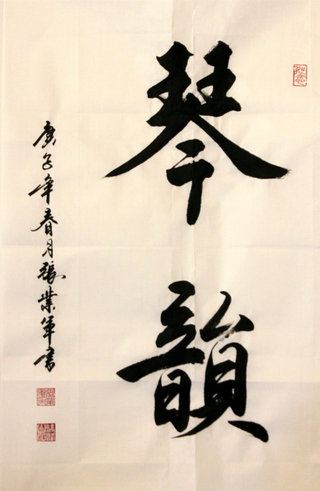 琴韻
庚子年春月張業軍書